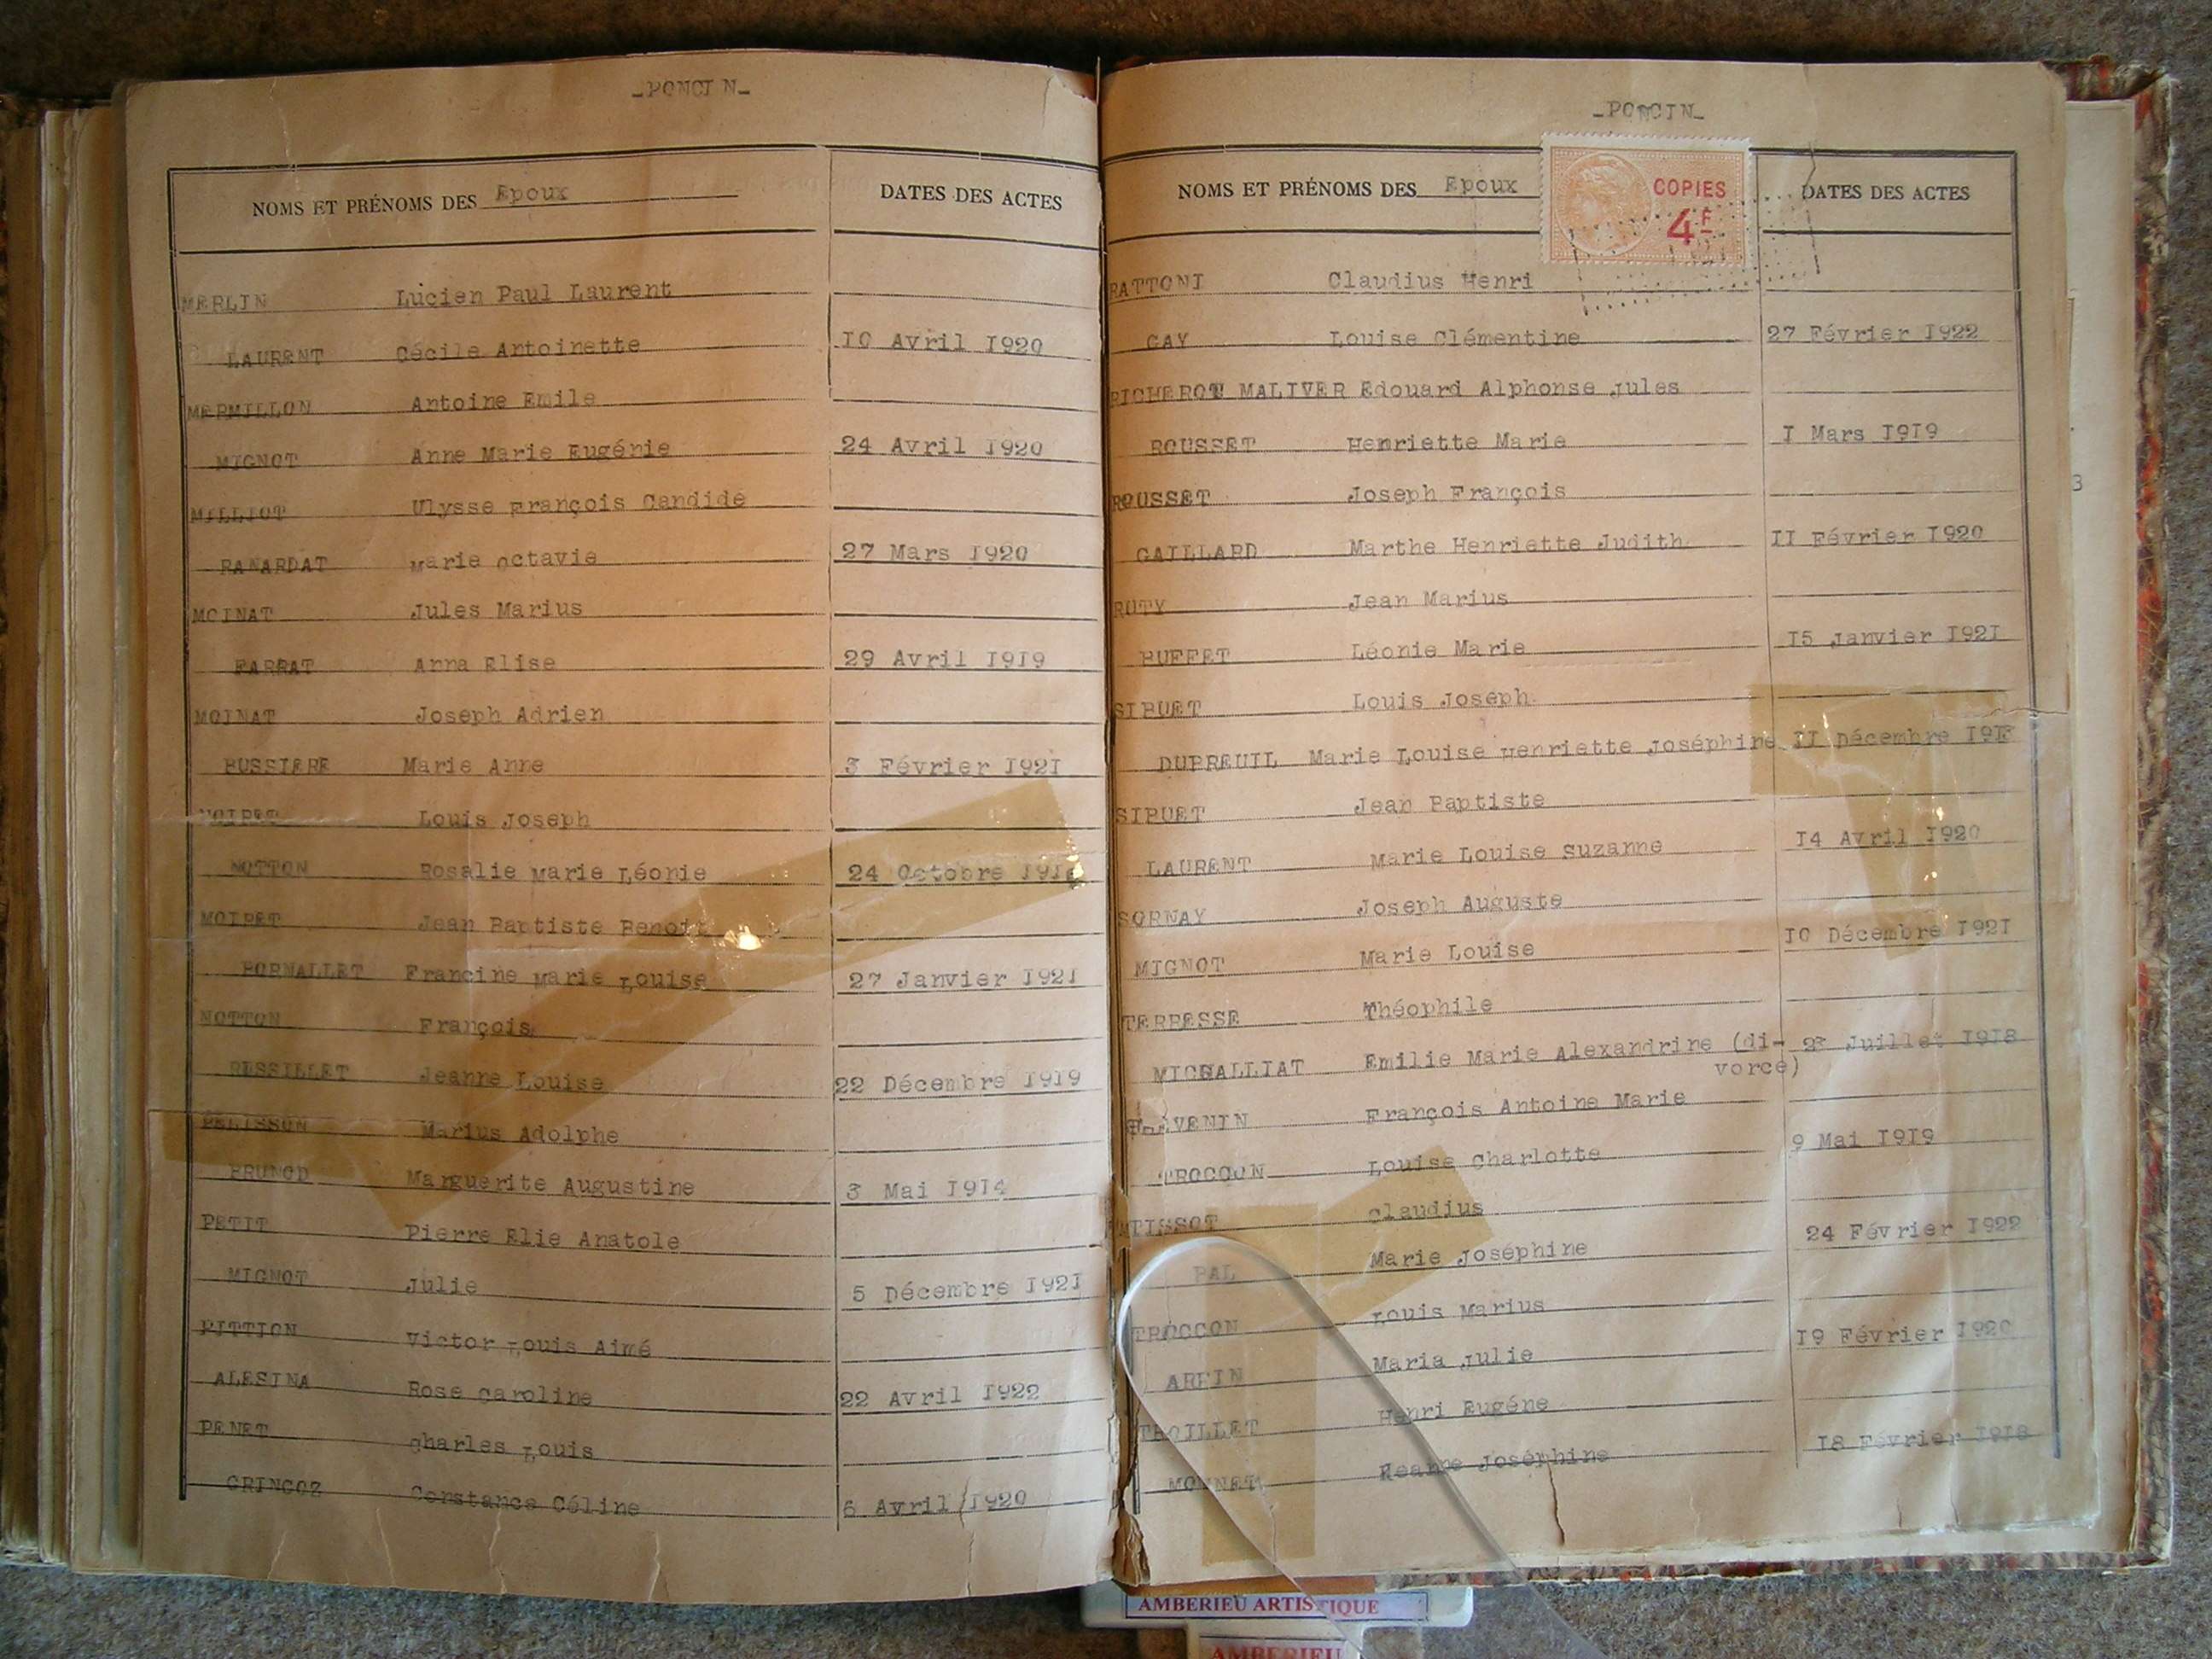 _PONCIN_
NOMS ET PRÉNOMS DES Epoux DATES DES ACTES
MERLIN Lucien Paul Laurent
LAURENT Cécile Antoinette 10 Avril 1920
MERMILLON Antoine Emile
MIGNOT Anne Marie Eugénie 24 Avril 1920
MILLIOT Ulysse François Candide
RANARDAT Marie Octavie 27 Mars 1920
MOINAT Jules Marius
FARRAT Anna Elise 29 Avril 1919
MOINAT Joseph Adrien
BUSSIERE Marie Anne 3 Février 1921
Louis Joseph
NOTTON Rosalie Marie Léonie 24 Octobre
Jean Baptiste Benoit
BORNALLET Francine Marie Louise 27 Janvier 1921
NOTTON François
RESSILLET Jeanne Louise 22 Décembre 1919
PELISSON Marius Adolphe
BRUNOD Marguerite Augustine 3 Mai 1914
PETIT Pierre Elie Anatole
MIGNOT Julie 5 Décembre 1921
PITTION Victor Louis Aimé
ALESINA Rose Caroline 22 Avril 1922
PENET Charles Louis
GRINGOZ Constance Céline 6 Avril 1920
_PONCIN_
NOMS ET PRÉNOMS DES Epoux DATES DES ACTES
COPIES
4F
RATTONI Claudius Henri
GAY Louise Clémentine 27 Février 1922
RICHEROT MALIVER Edouard Alphonse Jules
ROUSSET Henriette Marie 1 Mars 1919
ROUSSET Joseph François
GAILLARD Marthe Henriette Judith 11 Février 1920
RUTY Jean Marius
BUFFET Léonie Marie 15 Janvier 1921
SIBUET Louis Joseph
DUBREUIL Marie Louise Henriette Joséphine 11 Décembre
SIBUET Jean Baptiste
LAURENT Marie Louise Suzanne 14 Avril 1920
SORNAY Joseph Auguste
MIGNOT Marie Louise 10 Décembre 1921
TERRESSE Théophile
MICHALLIAT Emilie Marie Alexandrine (di- Juillet 1918
vorcé)
François Antoine Marie
TROCCON Louise Charlotte 9 Mai 1919
TISSOT Claudius
PAL Marie Joséphine 24 Février 1922
TROCCON Louis Marius
ARPIN Maria Julie 19 Février 1920
TROILLET Henri Eugéne
MONNET Joséphine 18 Février 1918
AMBERIEU ARTISTIQUE
AMBERIEU